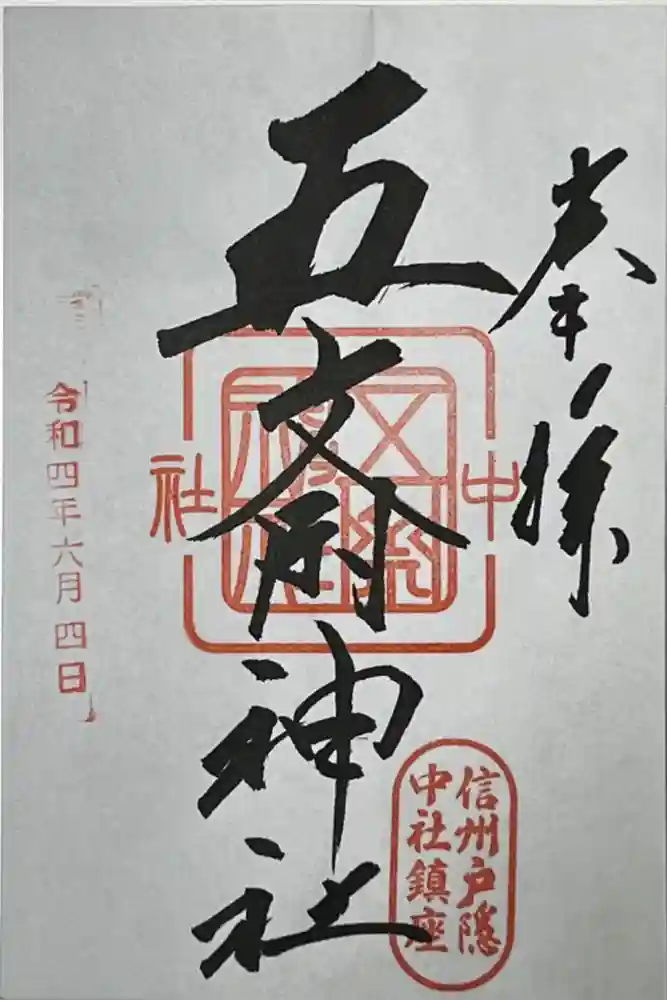 奉拝
五斎神社
中社
信州戸隠
中社鎮座
令和四年六月四日